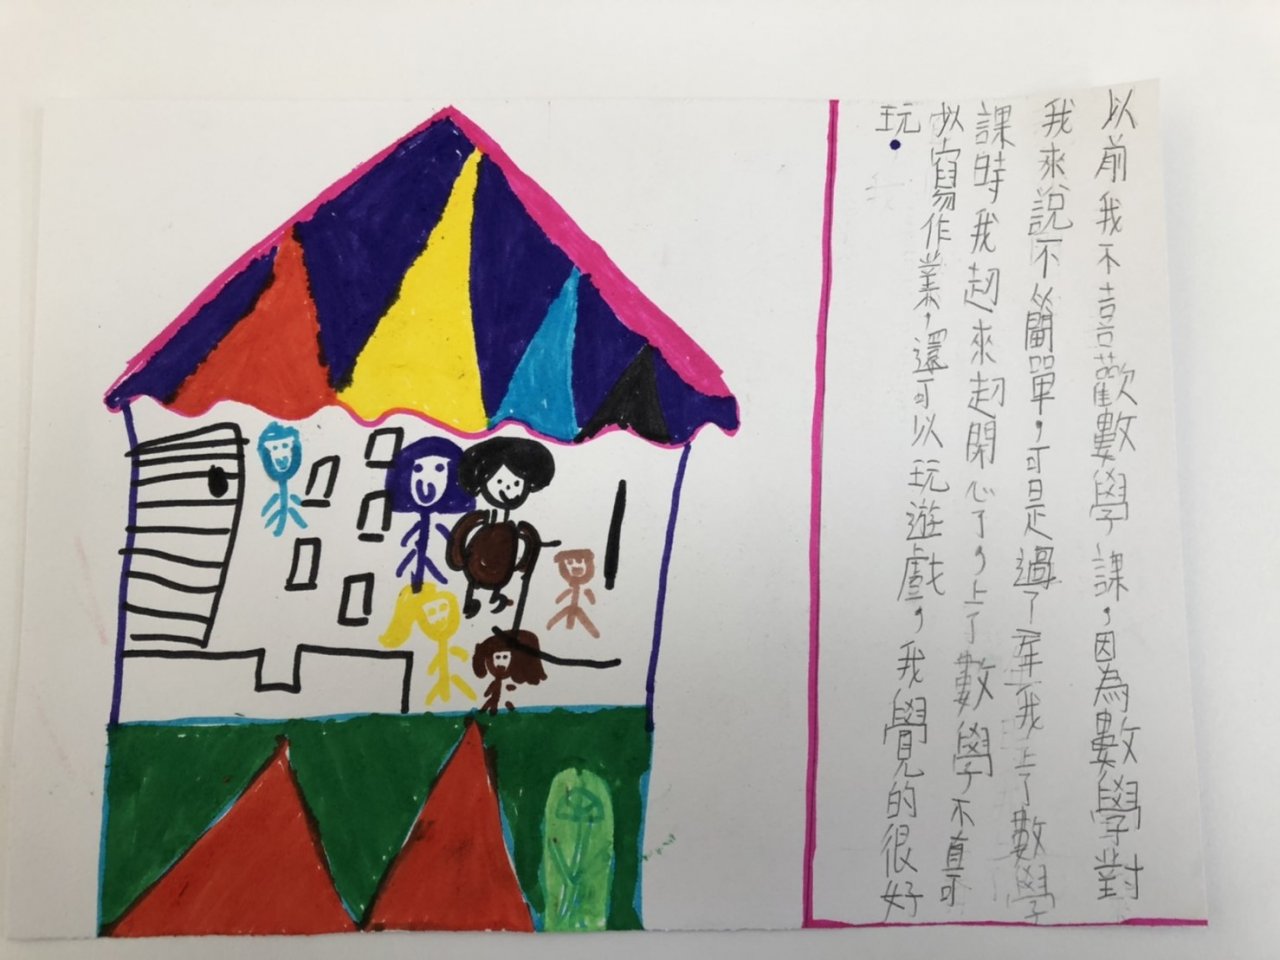 以前我不喜歡數學課，因為數學對
我來說不簡單，可是過了我上了數學
課時我越來越開心了，上了數學不直可
以寫作業，還可以玩遊戲，我覺的很好
玩。